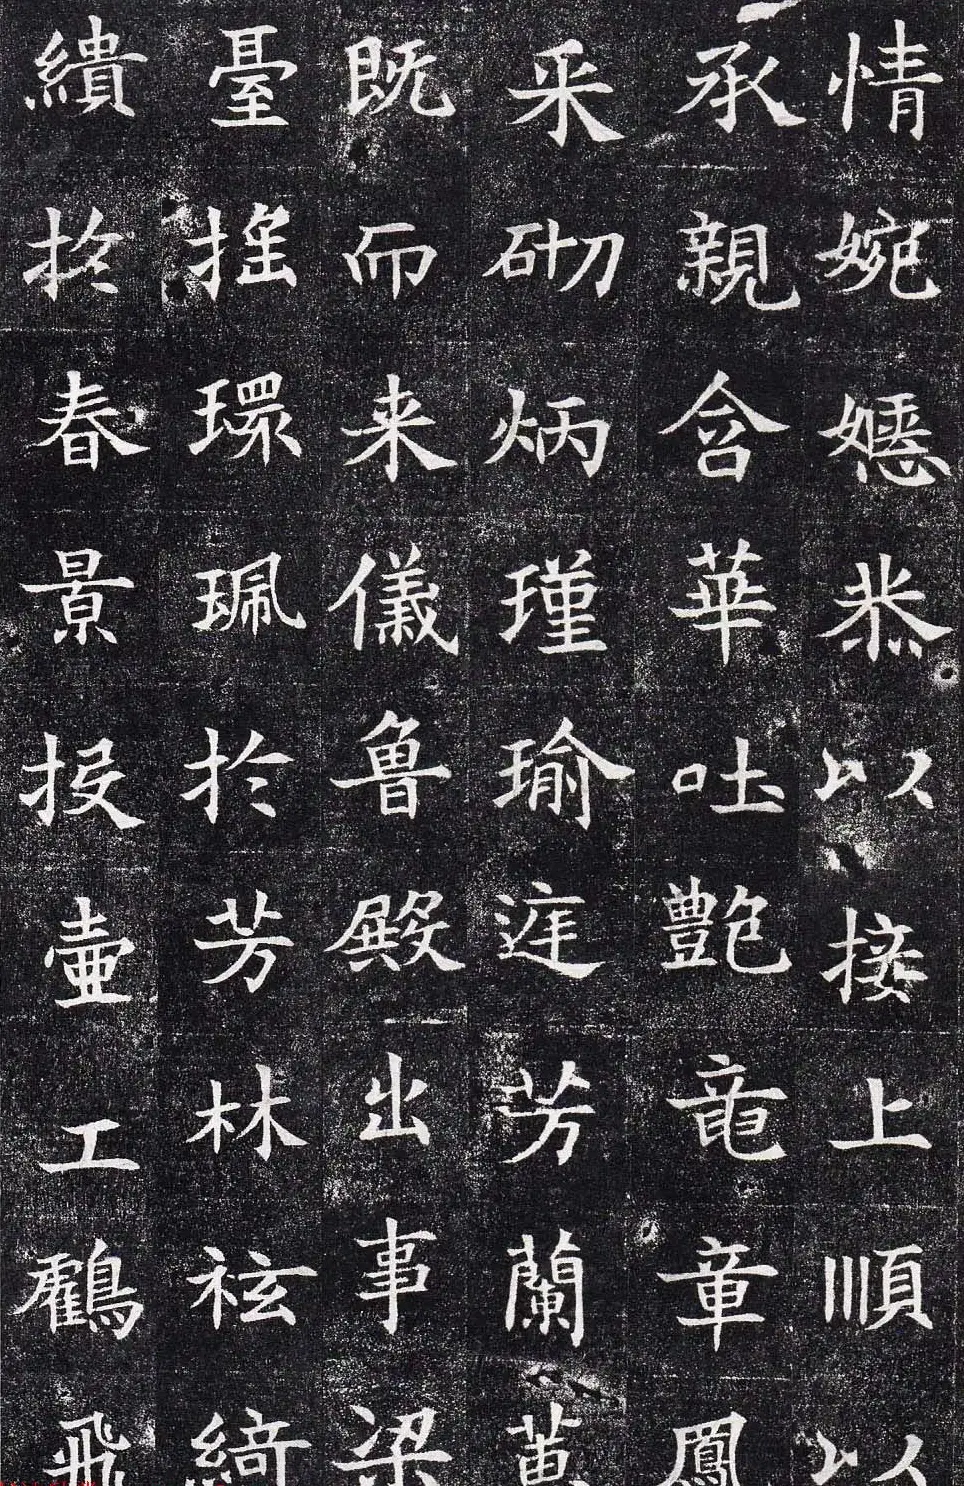 情婉嫕恭以接上順以
承親含華吐艷竜章鳳
采砌炳瑾瑜庭芳蘭蕙
既而来儀魯殿出事梁
臺搖環珮於芳林袨綺
繢於春景投壷工鸖飛